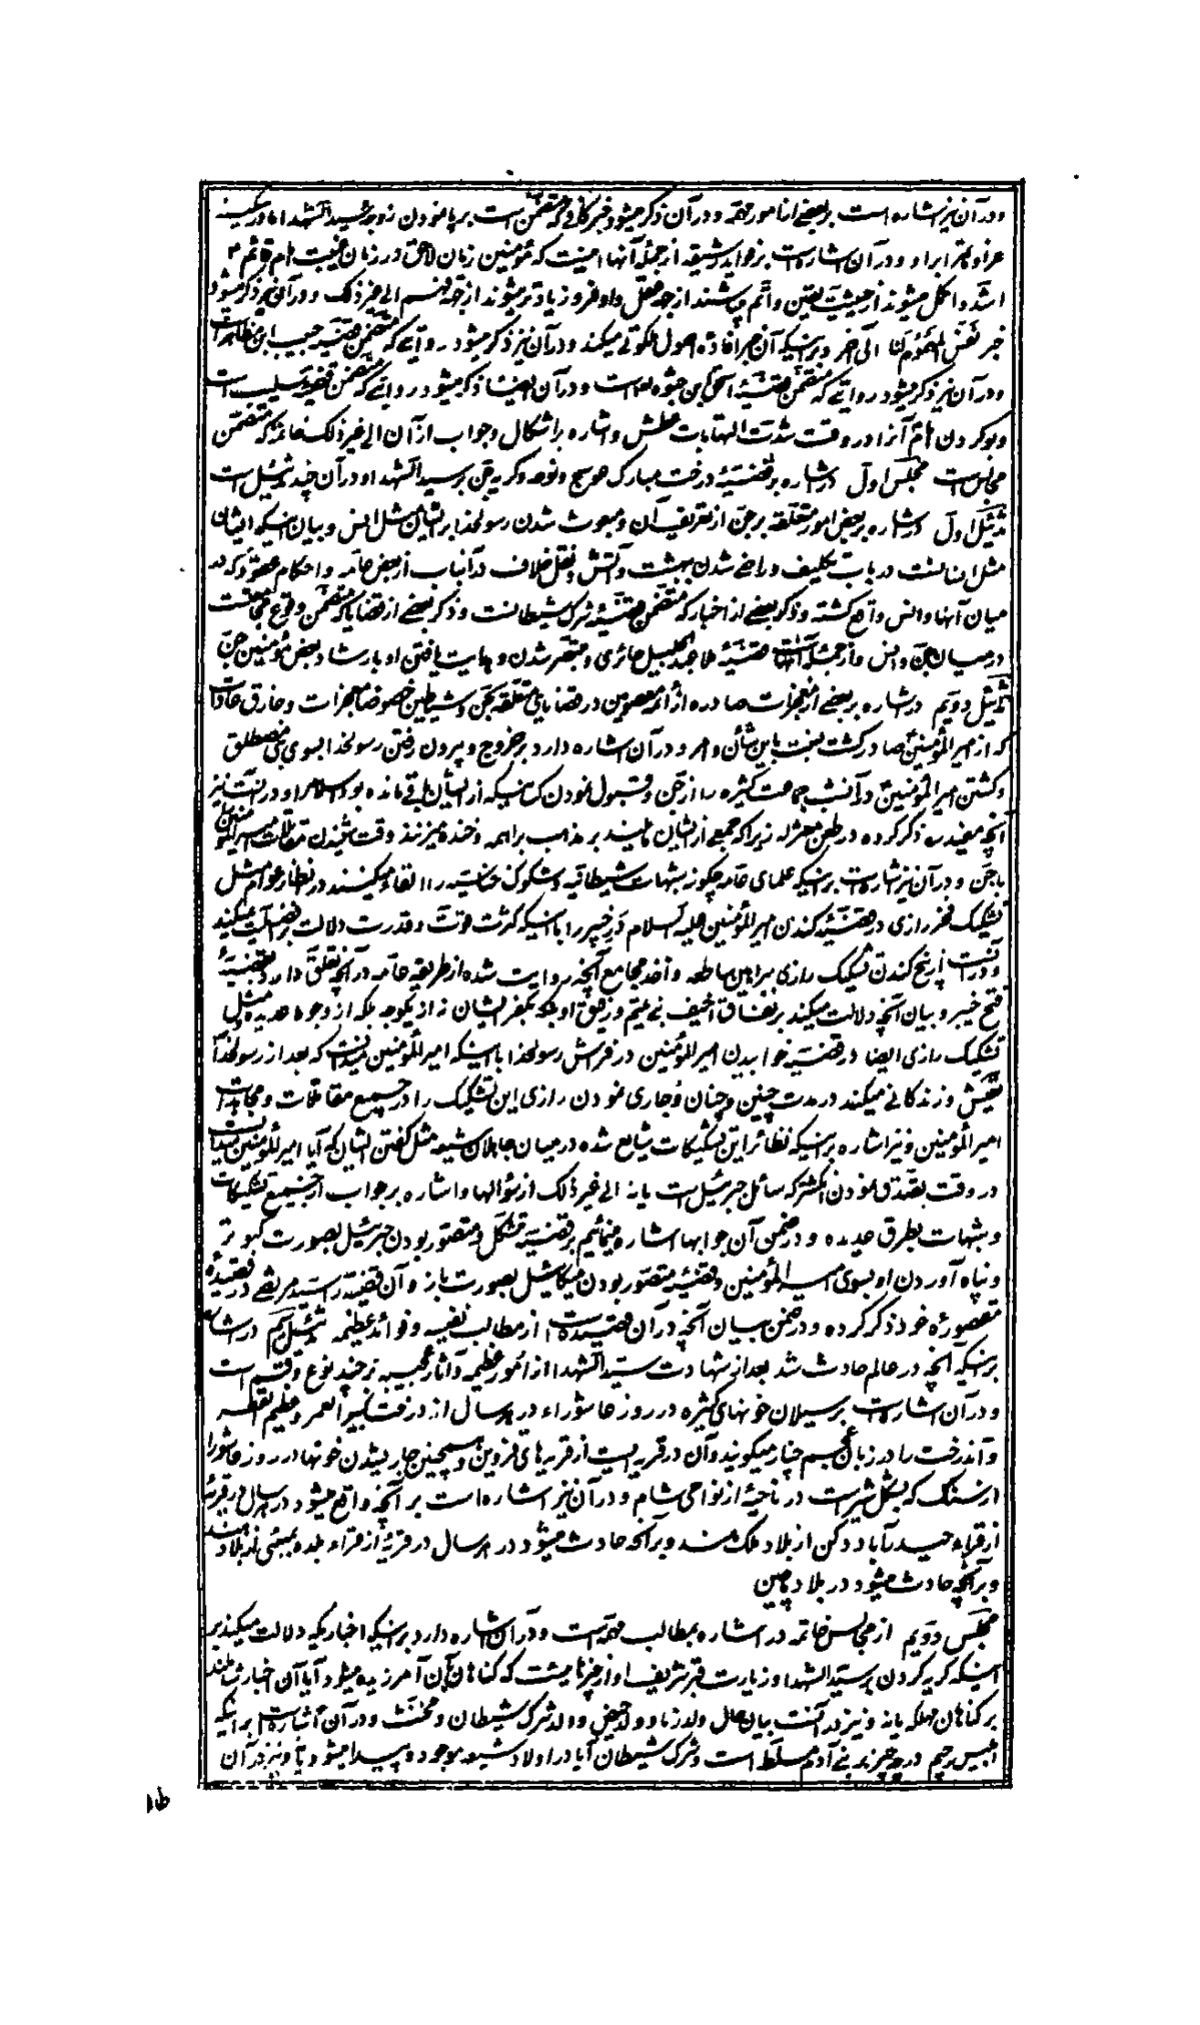 ودر آن نیز اشاره است بر بعضی از امور مهمه و در آن ذکر میشود خبر که متضمن است بر پا نمودن زوجه سید الشهداء
عزاء و ماتم برای او و در آن اشاره است بر فواید شریفه از جمله آنها اینست که مؤمنین زمان لاحق در زمان غیبت امام قائم
اشد و اکمل میشوند از حیثیت یقین و اتم میباشند از جهة عقل و اوفر و زیادتر میشوند از جهة فهم الی غیر ذلک و در آن نیز ذکر میشود
خبر نفس المهموم لنا الی آخر و بر اینکه آن خبر افاده اصول ملکوتی میکند و در آن نیز ذکر میشود روایتی که متضمن قضیه حبیب ابن مظاهر است
و در آن نیز ذکر میشود روایتی که متضمن قضیه اسحق بن است و در آن ایضا ذکر میشود روایتی که متضمن قضیه است
و بو کردن امام آنرا در وقت شدت التهابات عطش و اشاره بر اشکال و جواب از آن الی غیر ذلک خاتمه که متضمن
مجالس است مجلس اول در اشاره بر قضیه درخت مبارک عوسج و نوحه و گریه جن بر سید الشهداء و در آن چند تذییل است
تذییل اول در اشاره بر بعض امور متعلقه بر جن از تعریف آن و مبعوث شدن رسولخدا بر ایشان مثل انس و بیان اینکه ایشان
مثل انسانست در باب تکلیف و داخل شدن بهشت و آتش و نقل خلاف در آنباب از بعض عامه و احکام که در
میان آنها و انس واقع گشته و ذکر بعضی از اخبار که متضمن قضیه شرک شیطانست و ذکر بعضی از قضایا که متضمن وقوع است
در میان جن و انس و از جمله آنها قضیه ملا عبد الجلیل حائری و متحیر شدن و هدایت یافتن او بارشاد بعض مؤمنین جن
تذییل دویم در اشاره بر بعضی از معجزات صادره از ائمه معصومین در قضایای متعلقه بجن و شیاطین خصوصا معجزات و خارق عادات
که از امیر المؤمنین صادر گشت باین شأن و امر و در آن اشاره دارد بر خروج و بیرون رفتن رسولخدا بسوی بنی مصطلق
و کشتن امیر المؤمنین در آنشب جماعت کثیره را از جن و قبول نمودن کسانیکه از ایشان باقی مانده بود اسلام را و در آنست نیز
آنچه مفید ره ذکر کرده در طعن معتزله زیرا که جمعی از ایشان مایلند بر مذهب براهمه و خنده میزنند وقت شنیدن مقاتلات امیر المؤمنین
با جن و در آن نیز اشاره است بر اینکه علمای عامه چگونه شبهات شیطانیه و شکوک خناسیه را القاء میکنند در انظار عوام مثل
تشکیک فخر رازی در قضیه کندن امیر المؤمنین علیه السلام در خیبر را با اینکه کثرت قوت و قدرت دلالت بر فضلیت میکند
و در آنست از بیخ کندن تشکیک رازی ببراهین ساطعه و اخذ مجامع آنچه روایت شده از طریقه عامه در آنچه تعلق دارد بقضیه
فتح خیبر و بیان آنچه دلالت میکند بر نفاق اخیف بنی تیم و رفیق او بلکه بکفر ایشان نه از یکوجه بلکه از وجوه عدیده مثل
تشکیک رازی ایضا در قضیه خوابیدن امیر المؤمنین در فراش رسولخدا با اینکه امیر المؤمنین میدانست که بعد از رسولخدا
تعیش و زندگانی میکند در مدت چنین و چنان و جاری نمودن رازی این تشکیک را در جمیع مقاتلات و مجاهدات
امیر المؤمنین و نیز اشاره بر اینکه نظائر این تشکیکات شایع شده در میان جاهلان شیعه مثل گفتن ایشان که آیا امیر المؤمنین میدانست
در وقت تصدق نمودن انگشتر که سائل جبرئیل است یا نه الی غیر ذلک از سؤالها و اشاره بر جواب از جمیع تشکیکات
و شبهات بطرق عدیده و در ضمن آن جوابها اشاره مینمائیم بر قضیه متشکل و متصور بودن جبرئیل بصورت کبوتر
و پناه آوردن او بسوی امیر المؤمنین و قضیه متصور بودن میکائیل بصورت باز و آن قضیه را سید مرتضی در قصیده
مقصوره خود ذکر کرده و در ضمن بیان آنچه در آن قصیده است از مطالب نفیسه و فوائد عظیمه تذییل سیم در اشاره
بر اینکه آنچه در عالم حادث شد بعد از شهادت سید الشهداء از امور عظیمه و آثار عجیبه بر چند نوع و قسم است
و در آن اشاره است بر سیلان خونهای کثیره در روز عاشوراء در هر سال از درخت کبیر العمر و عظیم القطر
و آندرخت را در زبان عجم چنار میگویند و آن در قریه ایست از قریه های قزوین و همچنین جاریشدن خونها در روز عاشورا
از سنگ که بشکل شیر است در ناحیه از نواحی شام و در آن نیز اشاره است بر آنچه واقع میشود در هر سال در قریه
از قراء حیدرآباد دکن از بلاد ملک هند و بر آنچه حادث میشود در هر سال در قریه از قراء بلده بمبئی از بلاد هند
و بر آنچه حادث میشود در بلاد چین
مجلس دویم از مجالس خاتمه در اشاره بمطالب مهمه است و در آن اشاره دارد بر اینکه اخباریکه دلالت میکند بر
اینکه گریه کردن بر سید الشهداء و زیارت قبر شریف او از چیزهائیست که گناهان بآن آمرزیده میشود آیا آن اخبار شاملند
بر گناهان مهلکه یا نه و نیز در آنست بیان حال ولد زنا و ولد حیض و ولد شرک شیطان و مخنث و در آن اشاره است بر اینکه
ابلیس رجیم در چه چیز بر بنی آدم مسلط است و شرک شیطان آیا در اولاد شیعه موجود و پیدا میشود یا نه و نیز در آن